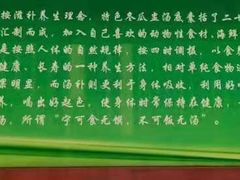 按滋补养生理念，特色冬瓜盅汤底囊括了二十
汇制而成，加入自己喜欢的动物性食材，海鲜
是按照人体的自然规律，按四时调摄，以食
健康、长寿的一种养生方法，相对单纯食物
果明显，而汤补则更利于身体吸收，利用好
养，喝出好起色，使身体时常保持在健康，
汤，所谓“宁可食无馔，不可饭无汤”。